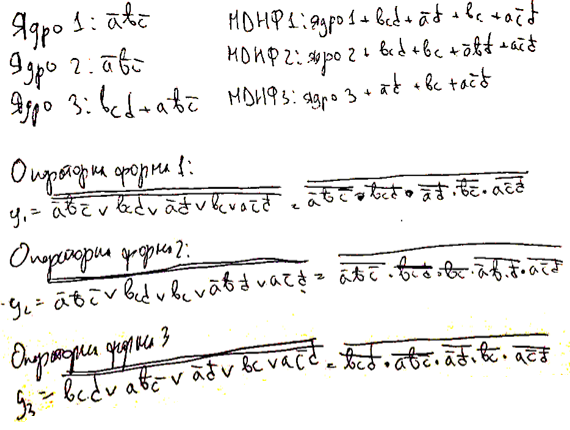 Ядро 1: a̅b̅c̅
Ядро 2: a̅b̅c̅
Ядро 3: bcd + ab̅c̅
МДНФ1: ядро 1 + bcd + a̅d̅ + bc + ac̅d̅
МДНФ2: ядро 2 + bcd + bc + a̅b̅d̅ + ac̅d̅
МДНФ3: ядро 3 + a̅d̅ + bc + ac̅d̅
Операторна форма 1:
y₁ = a̅b̅c̅ v bcd v a̅d̅ v bc v ac̅d̅ = a̅b̅c̅ · bcd · a̅d̅ · bc · ac̅d̅
Операторна форма 2:
y₂ = a̅b̅c̅ v bcd v bc v a̅b̅d̅ v ac̅d̅ = a̅b̅c̅ · bcd · bc · a̅b̅d̅ · ac̅d̅
Операторна форма 3
y₃ = bcd v ab̅c̅ v a̅d̅ v bc v ac̅d̅ = bcd · ab̅c̅ · a̅d̅ · bc · ac̅d̅